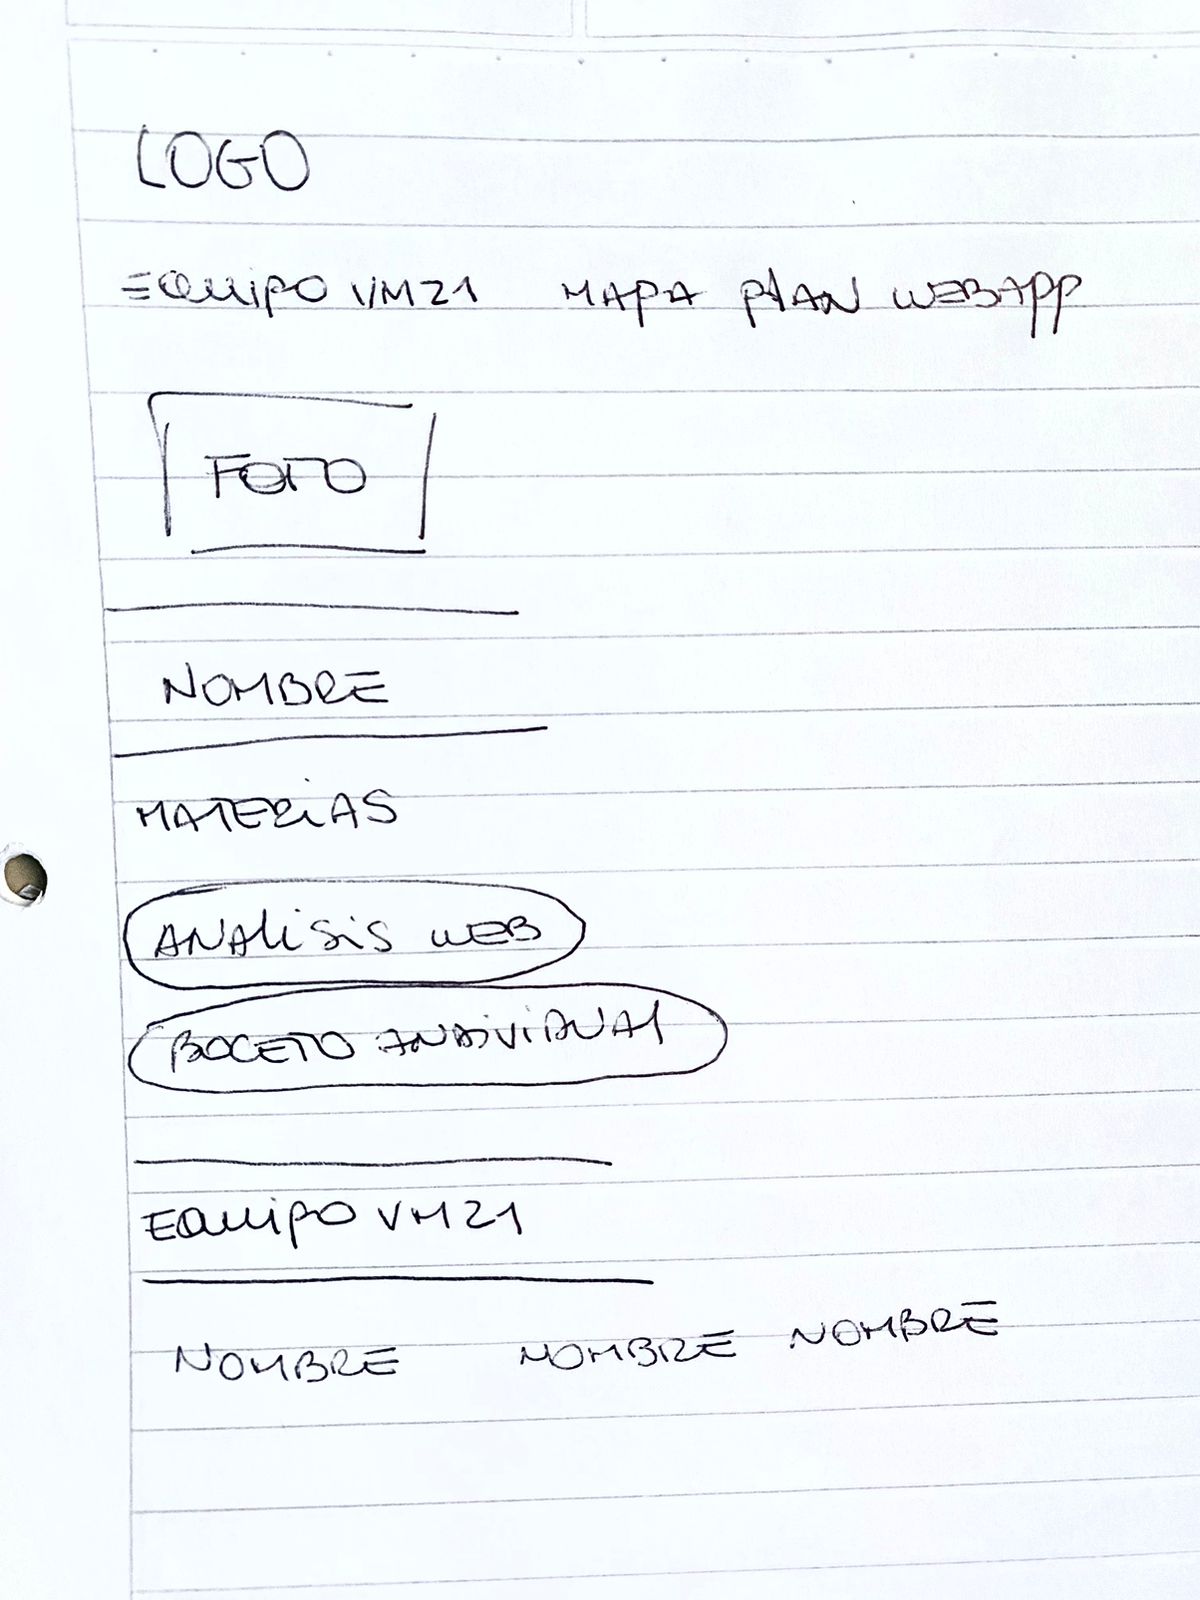 LOGO
EQUIPO VM21 MAPA PLAN WEBAPP
FOTO
NOMBRE
MATERIAS
ANALISIS WEB
BOCETO INDIVIDUAL
EQUIPO VM21
NOMBRE NOMBRE NOMBRE